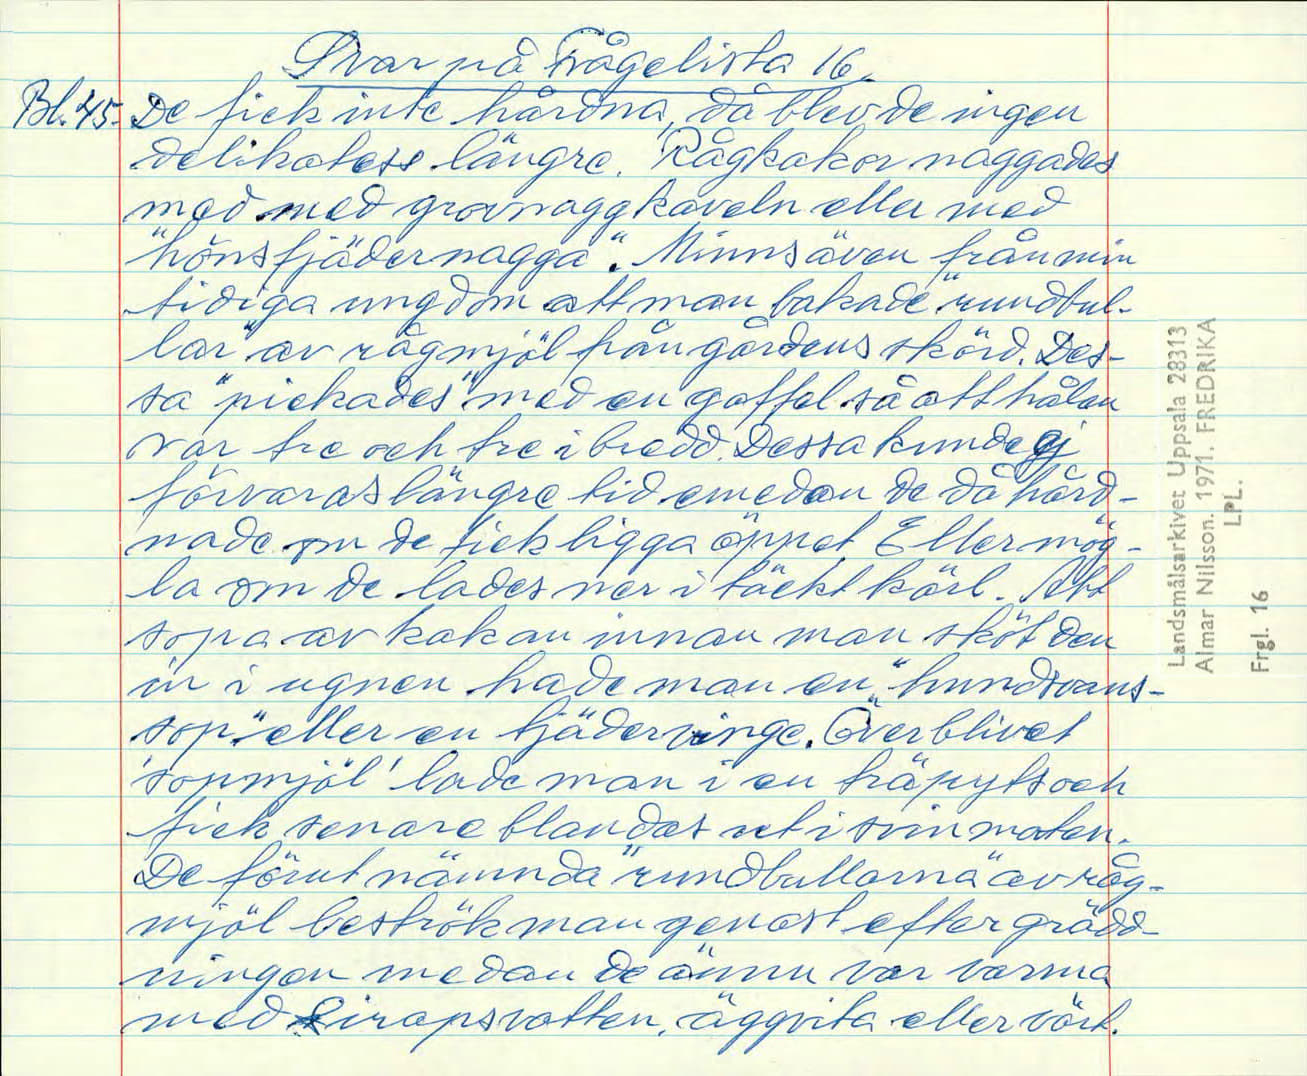 Svar på Frågelista 16.
Bl. 45. De fick inte hårdna, då blev de ingen
delikatess längre. Rågkakor naggades
med med grovnaggkaveln eller med
"hönsfjädernagga". Minns även från min
tidiga ungdom att man bakade "rundbul-
lar" av rågmjöl från gårdens skörd. Des-
sa "pickades" med en gaffel så att hålen
var tre och tre i bredd. Dessa kunde ej
förvaras längre tid emedan de då hård-
nade om de fick ligga öppet Eller mög-
la om de lades ner i täckt kärl. Att
sopa av kakan innan man sköt den
in i ugnen hade man en "hundsvans-
sop" eller en tjädervinge. Överblivet
'sopmjöl' lade man i en träpyts och
fick senare blandas ut i svinmaten.
De förut nämnda "rundbullarna" av råg-
mjöl beströk man genast efter grädd-
ningen medan de ännu var varma
med sirapsvatten, äggvita eller vört.
Landsmålsarkivet Uppsala 28313
Almar Nilsson. 1971. FREDRIKA
LPL.
Frgl. 16